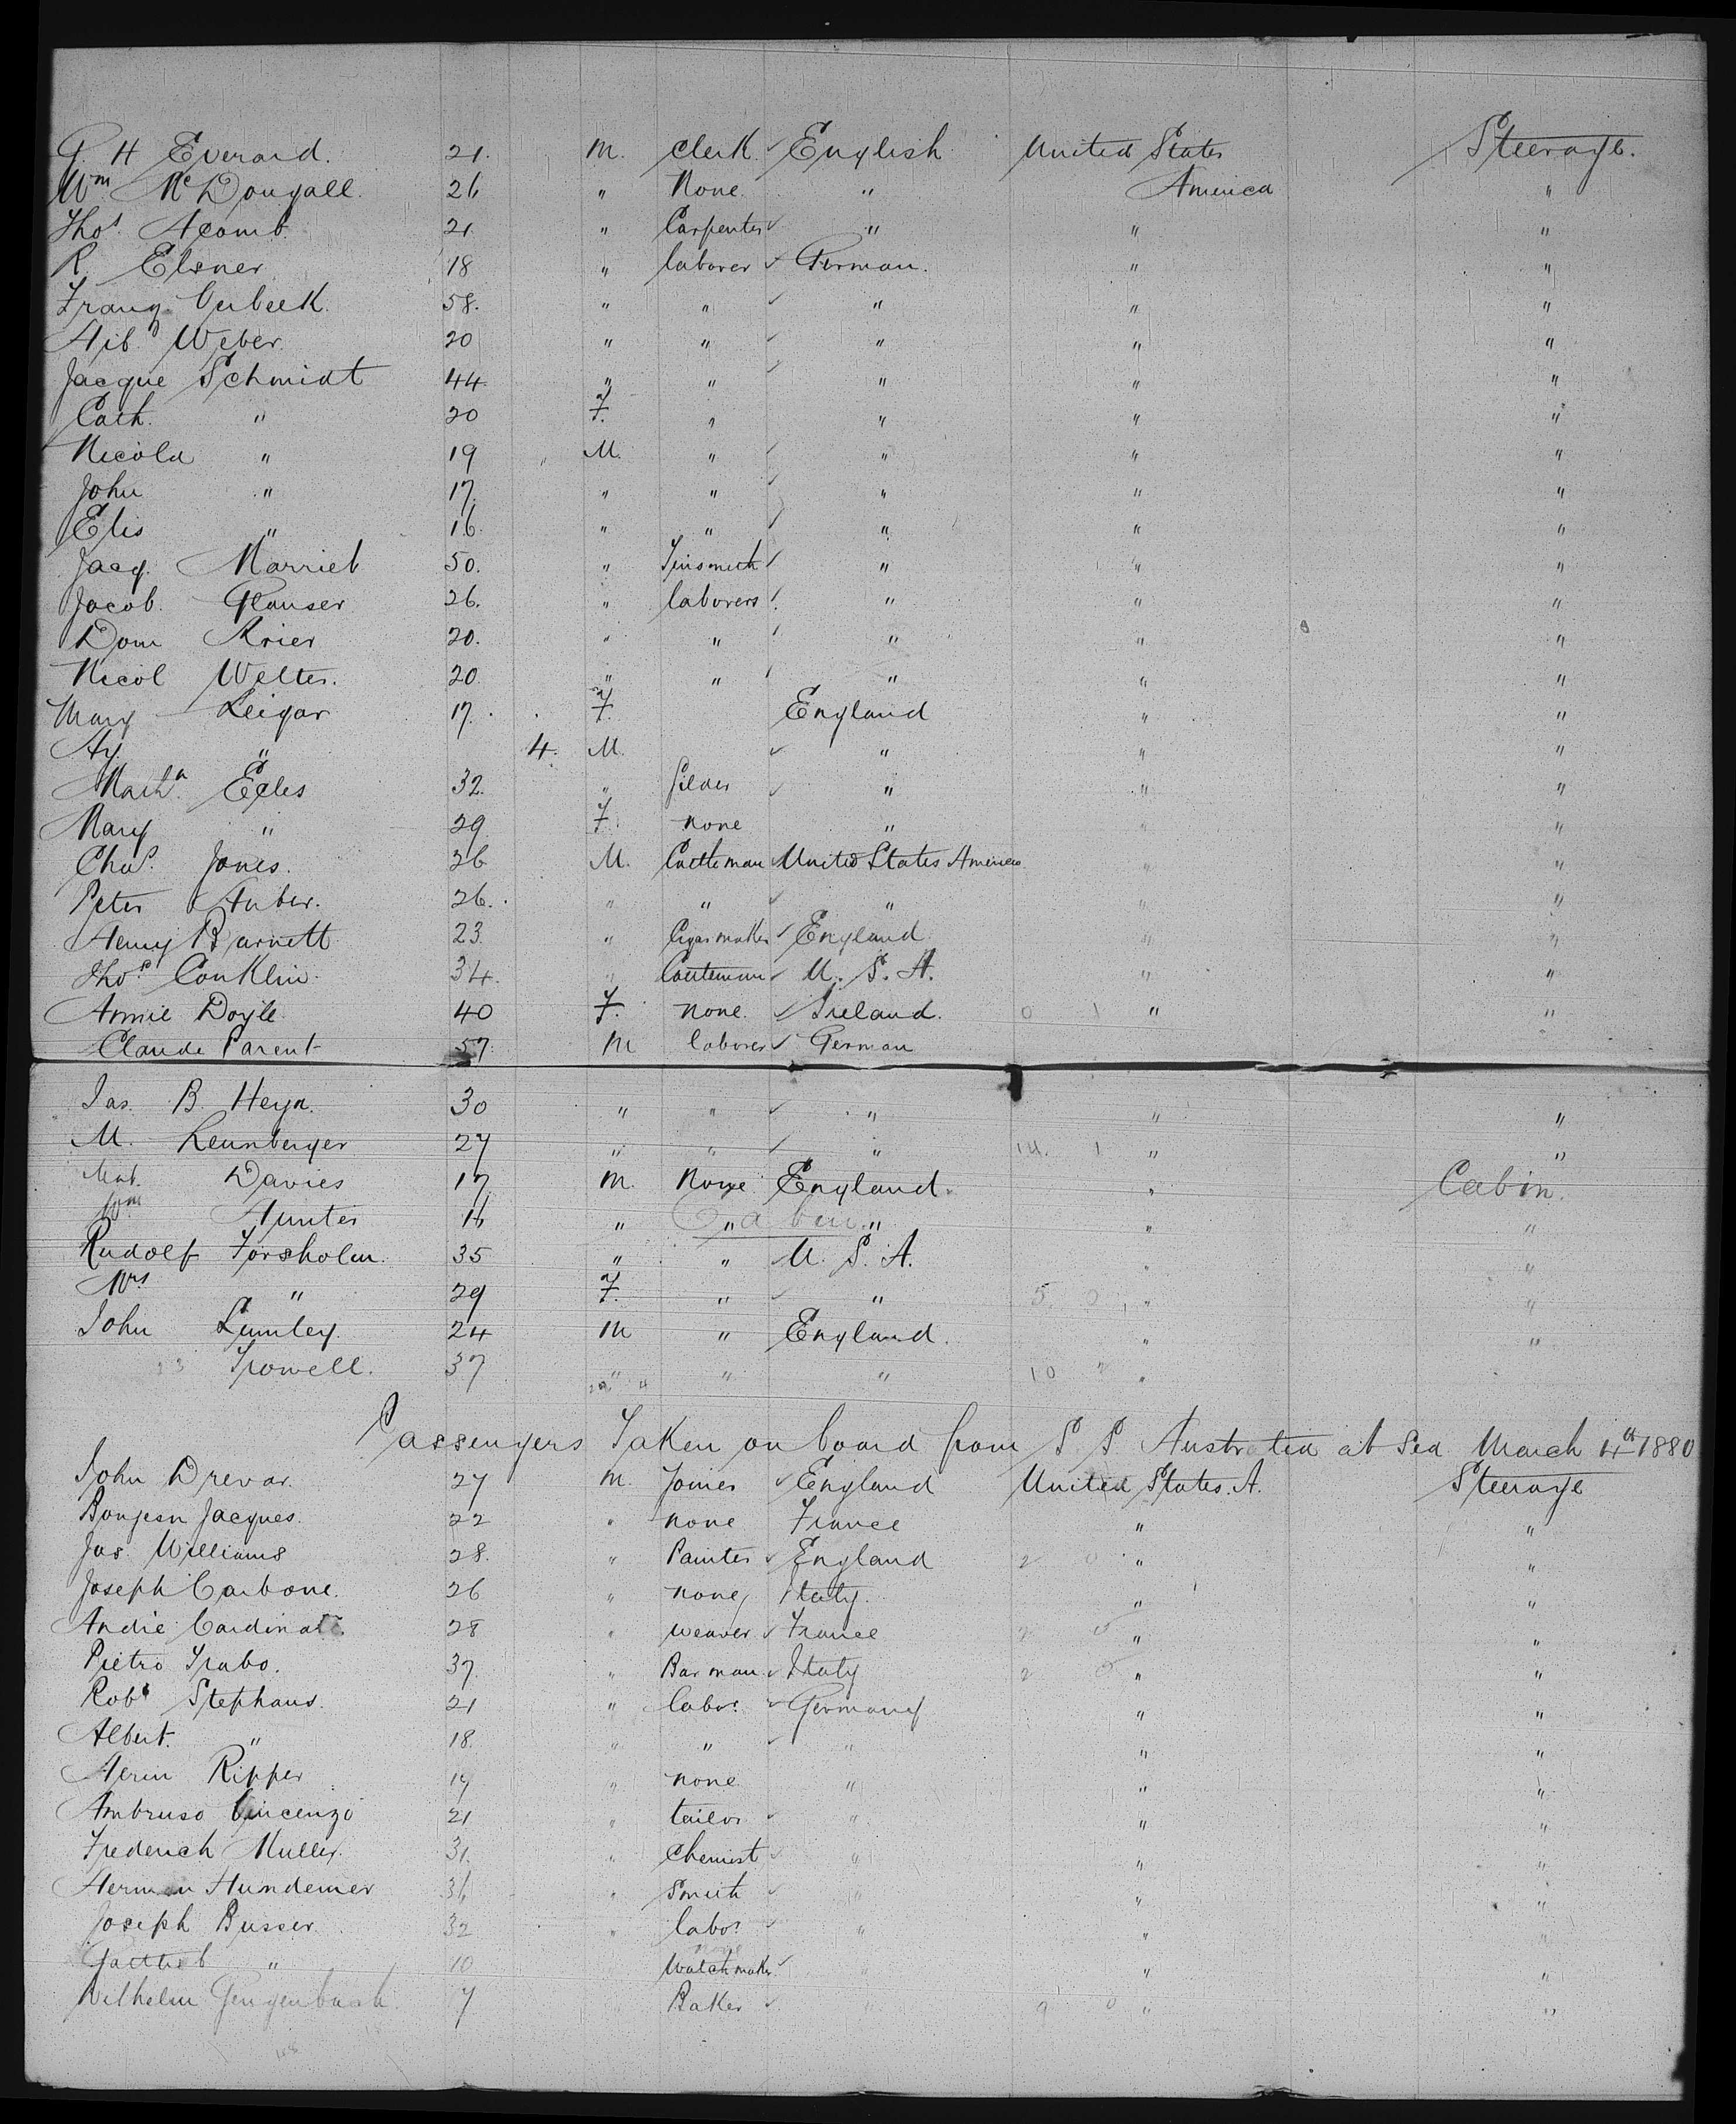 G. H Everard. 21. M. Clerk English United States Steerage.
Wm McDougall. 26 " None. " America "
Thos. Acomb. 21 " Carpenter " " "
R. Elsner 18 " laborer German. " "
Franz Verbeek. 58. " " " " "
Weber. 20 " " " " "
Jacque Schmidt 44 " " " " "
Cath. " 20 F. " " " "
Nicola " 19 M. " " " "
John " 17. " " " " "
Elis " 16. " " " " "
Jacq. Marrieb 50. " Tinsmith " " "
Jacob. Glauser 26. " laborers " " "
Dom Krier 20. " " " " "
Nicol Welter. 20. " " " " "
Mary Leigar 17. F. England " "
Hy. " 4. M. " " "
Eccles 32. " " " "
Mary " 29 F. none " " "
Chas. Jones. 26 M. Cattleman United States America " "
Peter Huber. 26. " " " " "
Henry Barnett 23. " Cigar maker England " "
Thos. Conklin. 34. " Cattleman U. S. A. " "
Annie Doyle 40 F. none. Ireland. 0 1 " "
Claude Parent 57. M laborer German
Jas. B. Heyn. 30 " " " " "
M. Leunberger 27 " " " 14. 1 " "
Davies 17 M. None England. " Cabin.
Wm Hunter 16 " " Cabin " " "
Rudolf Forsholm. 35 " " U. S. A. " "
Mrs " 29 F. " " 5. 0 " "
John Lumley. 24 M " England. " "
Trowell. 37 " " " 10 "
Passengers Taken on board from S S Australia at Sea March 4th 1880
John Drevar. 27 M. Joiner England United States. A. Steerage
Bonjean Jacques. 22 " none France " "
Jas. Williams 28. " Painter England 2 0 " "
Joseph Carbone. 26 " none Italy. " "
Andre Cardinale. 28 " weaver France 2 0 " "
Pietro Trabo. 37. " Barman Italy 2 0 " "
Robt Stephans. 21 " labor. Germany " "
Albert. " 18. " " " " "
Herm Ripper 19 " none " " "
Ambruso Vincenzo 21 " tailor " " "
Frederich Muller. 31. " Chemist " " "
Herman Hundemer 36 " Smith " " "
Joseph Busser 32 " labor. " " "
Gottlieb " 10 Watchmaker " " "
Wilhelm Gengenbach. 7 Baker " 9 0 " "